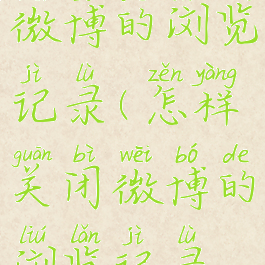 微博的浏览
jì lù zěn yàng
记录(怎样
guān bì wēi bó de
关闭微博的
liú lǎn jì lù
浏览记录